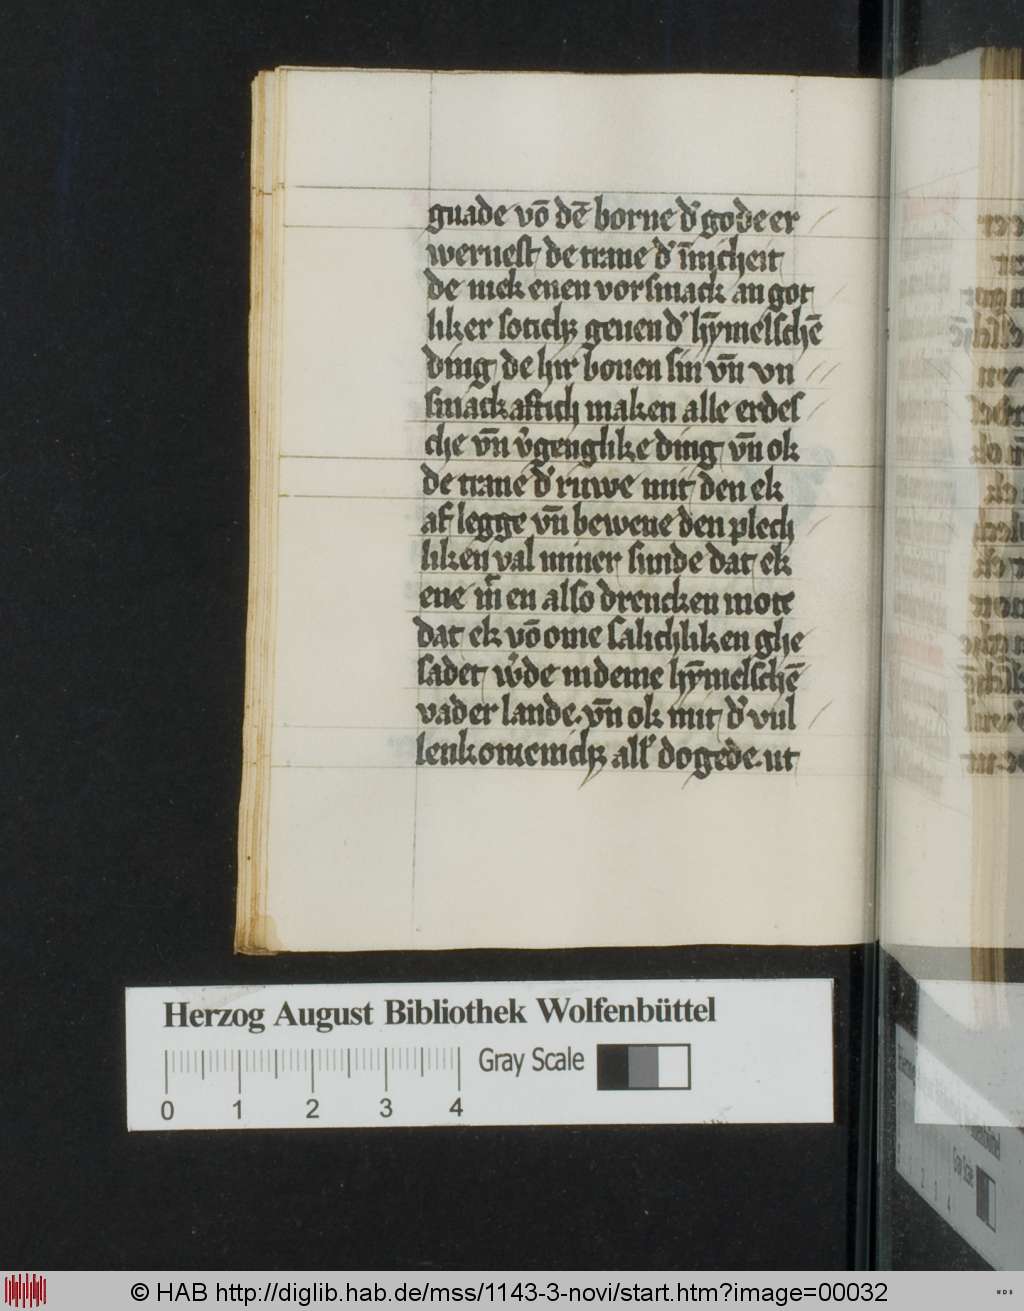 gnade vō dē borne dͤ gode er
weruest de trane dͤ īnicheit
de mek enen vorsmack an got
liker soticheꝫ geuen dͤ hȳmelschē
ding de hir bouen sin vn̄ vn
smackaftich maken alle erdes
che vn̄ vͦgenglike ding vn̄ ok
de trane dͤ ruwe mit den ek
af legge vn̄ bewene den plech
liken val miner sunde dat ek
ene en also drencken mote
dat ek vō ome salichliken ghe
sadet wͦde in deme hȳmelschē
vader lande. vn̄ ok mit dͤ vul
lenkomenicheꝫ allͤ dogede. ut
Herzog August Bibliothek Wolfenbüttel
Gray Scale
0 1 2 3 4
© HAB http://diglib.hab.de/mss/1143-3-novi/start.htm?image=00032